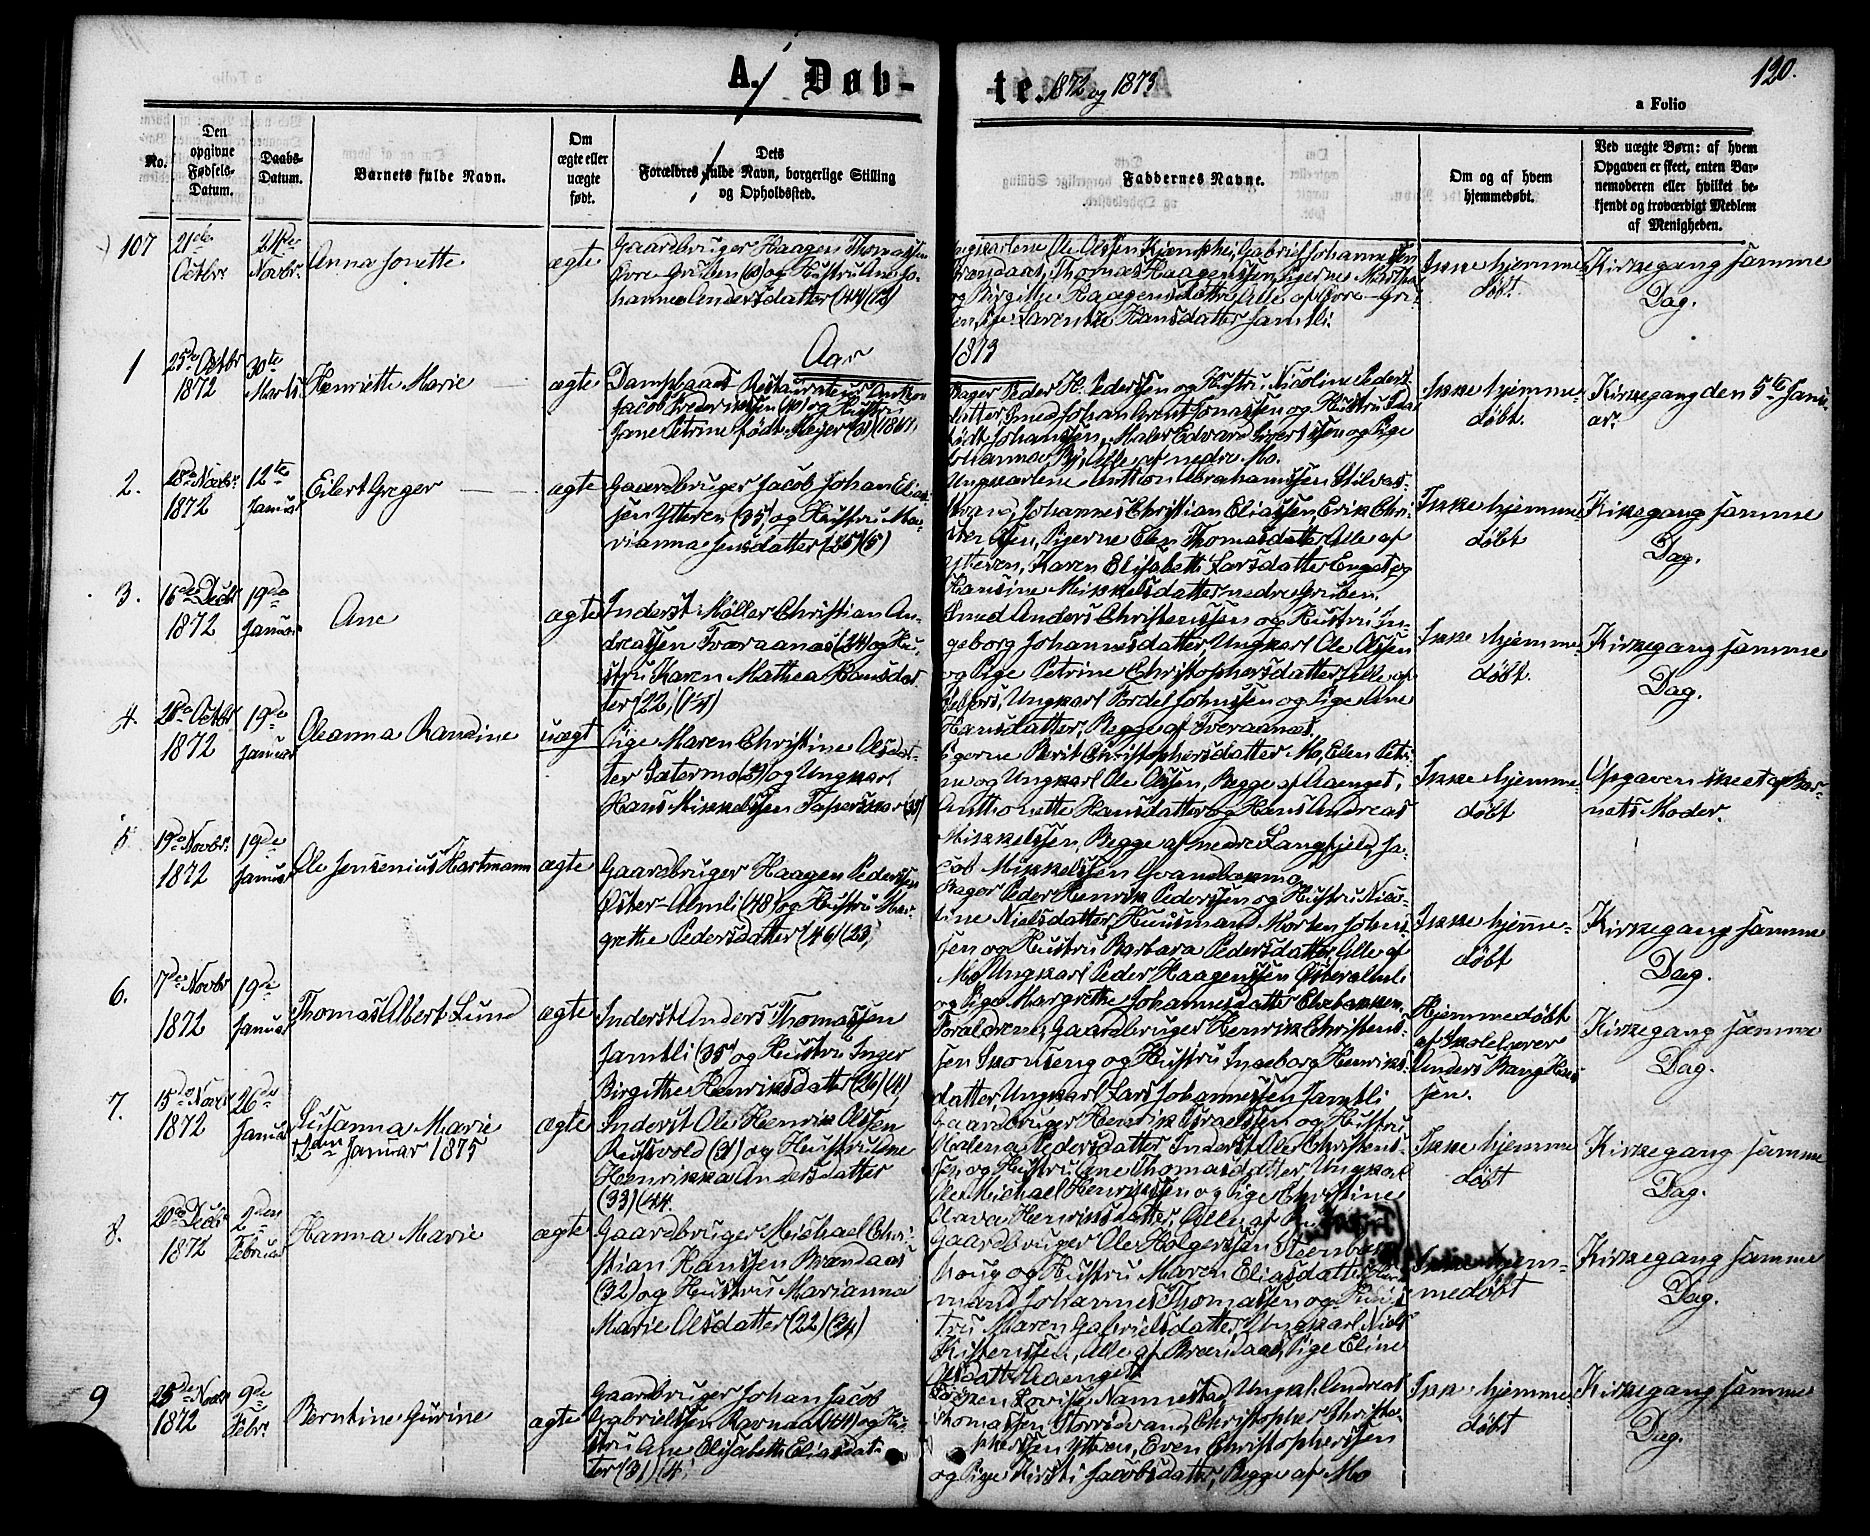 A. Døb-
te. 1872 og 1873
120.
a Folio
No.
Den opgivne Fødsels-Datum.
Daabs-Datum.
Barnets fulde Navn.
Om ægte eller uægte født.
Dets Forældres fulde Navn, borgerlige Stilling og Opholdssted.
Faddernes Navne.
Om og af hvem hjemmedøbt.
Ved uægte Børn: af hvem Opgaven er skeet, enten Barnemoderen eller hvilket bekjendt og troværdigt Medlem af Menigheden.
107
21de Octbr
24de Novbr.
Anna Jonette
ægte
Gaardbruger Haagen Thomassen
og Hustru Ane Jo-
hanna Andersdatter (44) (12)
Ungkarlene Ole Olssen Gabriel Johannessen
Brændaas, Thomas Haagenssen, Pigerne Martha
og Birgitte Haagensdattre Alle af
Pige Larentze Hansdatter Jamtli.
Ikke hjemme-
døbt.
Kirkegang samme
Dag.
Aar
1873
1
25de Octbr
1872
30te
Marts
Henriette Marie
ægte
Dampbaads Restaurateur
Jacob Frederikssen (40) og Hustru
Jane Petrine født Meyer (31)
Bager Peder H. Pederssen og Hustru Nicoline Peders-
datter Smed Johan Arent Jonassen og Hustru
født Johanssen, Maler Edvard Sivertssen og Pige
Johanna Alle af nedre Mo.
Ikke hjemme-
døbt.
Kirkegang den 5te Janu-
ar.
2.
28de Novbr.
1872
12te
Januar
Eilert Greger
ægte
Gaardbruger Jacob Johan Elias-
sen Ytteren (35) og Hustru Ma-
rianna Jensdatter (25) (5)
Ungkarlene Anthon Abrahamssen Stilvas-
Johannes Christian Eliassen, Erik Chri-
Pigerne Elen Thomasdatter Alle af
Ytteren, Karen Elisabeth Larsdatter Enget og
Hansine Mikkelsdatter nedre Gruben.
Ikke hjemme-
døbt
Kirkegang samme
Dag.
3.
16de Decbr
1872
19de
Januar
Ane
ægte
Inderst Møller Christian An-
dreassen Tværaanæs (24) og Hu-
stru Karen Mathea Hansdat-
ter (22)
Smed Anders Christenssen og Hustru In-
geborg Johannesdatter, Ungkarl Ole Olssen
og Pige Petrine Christophersdatter, Alle af
Selfors, Ungkarl Johnssen og Pige Ane
Hansdatter, Begge af Tveraanæs.
Ikke hjemme-
døbt.
Kirkegang samme
Dag.
4.
28de Octbr
1872
19de
Januar
Oleanna Randine
uægt
Pige Maren Christine Olsdat-
ter Sætermo og Ungkarl
Hans Mikkelssen
Pigerne Berit Christophersdatter Mo, Elen Petri-
ne og Ungkarl Ole Olssen, Begge af Aaenget,
Anthonette Hansdatter og Hans Andreas
Mikkelssen, Begge af nedre Langfjeld, Ja-
cob Mikkelssen
Ikke hjemme
døbt
Opgaven skeet af Bar-
nets Moder.
5.
19de Novbr.
1872
19de
Januar
Ole Jensenius Hartmann
ægte
Gaardbruger Haagen Pederssen
Øster-Almli (48) og Hustru Mar-
grethe Pedersdatter (46) (23)
Bager Peder Henrik Pederssen og Hustru Nico-
line Nielsdatter, Huusmand Morten Johns-
sen og Hustru Barbara Pedersdatter, Alle af
Mo, Ungkarl Peder Haagenssen Østeralmli
og Pige Margrethe Johannesdatter
Ikke hjemme-
døbt
Kirkegang samme
Dag.
6.
7de Novbr
1872
19de
Januar
Thomas Albert Lund
ægte
Inderst Anders Thomassen
Jamtli (35) og Hustru Inger
Birgitha Henriksdatter (26) (4)
Forældrene, Gaardbruger Henrik Christens-
sen Skonseng og Hustru Ingeborg Henriks-
datter, Ungkarl Lars Johannessen Jamtli
Hjemmedøbt
af Skolelærer
Anders Bang Hans-
sen.
Kirkegang samme
Dag.
7.
15de Novbr
1872
26de
Januar
Susanna Marie
† Januar 1875
ægte
Inderst Ole Henrik Olssen
Ruusvold (31) og Hustru Ane
Henrikka Andersdatter
(33) (44.
Gaardbruger Henrik Israelssen og Hustru
Malena Pedersdatter, Inderst Ole Christens-
sen og Hustru Ane Thomasdatter, Ungkarl
Ole Michael Henrikssen og Pige Christine
Olava Henriksdatter, Alle af
Ikke hjemme
døbt
Kirkegang samme
Dag.
8.
20de Decbr
1872
2den
Februar
Hanna Marie
ægte
Gaardbruger Michael Chri-
stian Hanssen Brændaas
(32) og Hustru Marianna
Marie Olsdatter (22) (3/4)
Gaardbruger Ole Holgerssen Steenbæk-
houg og Hustru Maren Eliasdatter,
mand Johannes Thomassen og Hus-
tru Maren Gabrielsdatter, Ungkarl Niels
Kristenssen, Alle af Brændaas, Pige Eline
Olsdatter Aaenget
Ikke hjem-
medøbt
Kirkegang samme
Dag.
9
25de Novbr
1872
9de
Febr.
Berntine Gurine
ægte
Gaardbruger Johan Jacob
Gabrielssen Ravndal og Hu-
stru Ane Elisabeth Eliasdat-
ter (31) (4)
Frøken Lovise Nannestad, Ungk. Andreas
Thomassen Storsvand, Christopher Christo-
pherssen Ytteren, Even Christopherssen
og Pige Kirsti Jacobsdatter, Begge af Mo
Ikke hjemme-
døbt
Kirkegang samme
Dag.